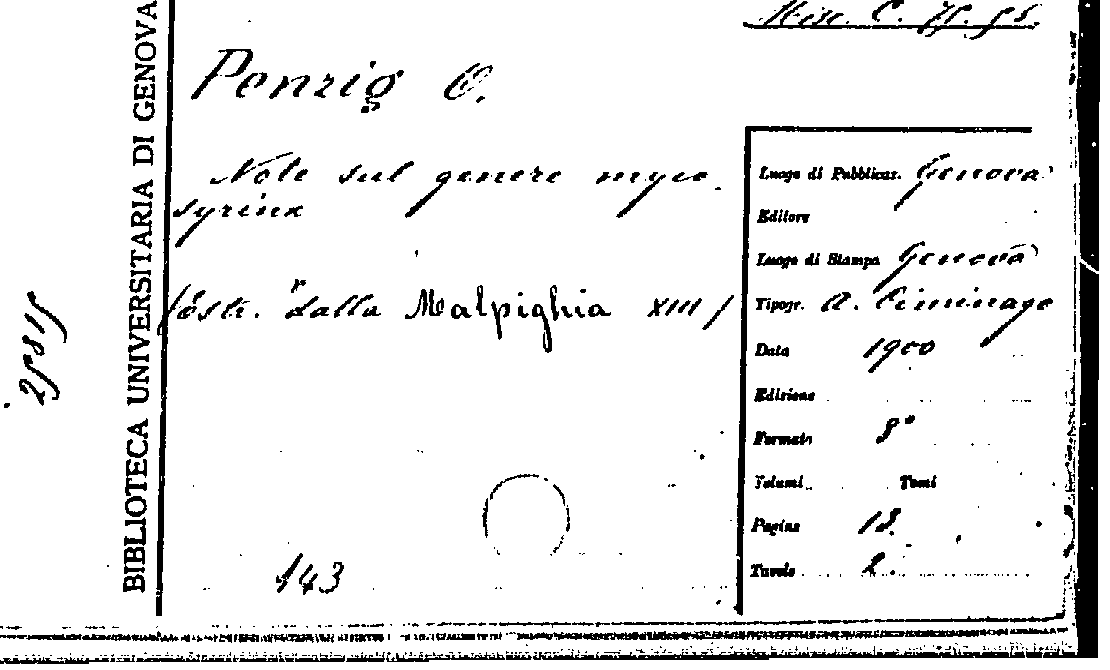 Misc. C.
Penzig O.
Note sul genere myco
syrinx
(estr. "dalla Malpighia XIII)
143
BIBLIOTECA UNIVERSITARIA DI GENOVA
Luogo di Pubblicaz. Genova
Editore
Luogo di Stampa Genova
Tipogr. A. Ciminago
Data 1900
Edizione
Formato 8°
Volumi Tomi
Pagine 18.
Tavole 2.